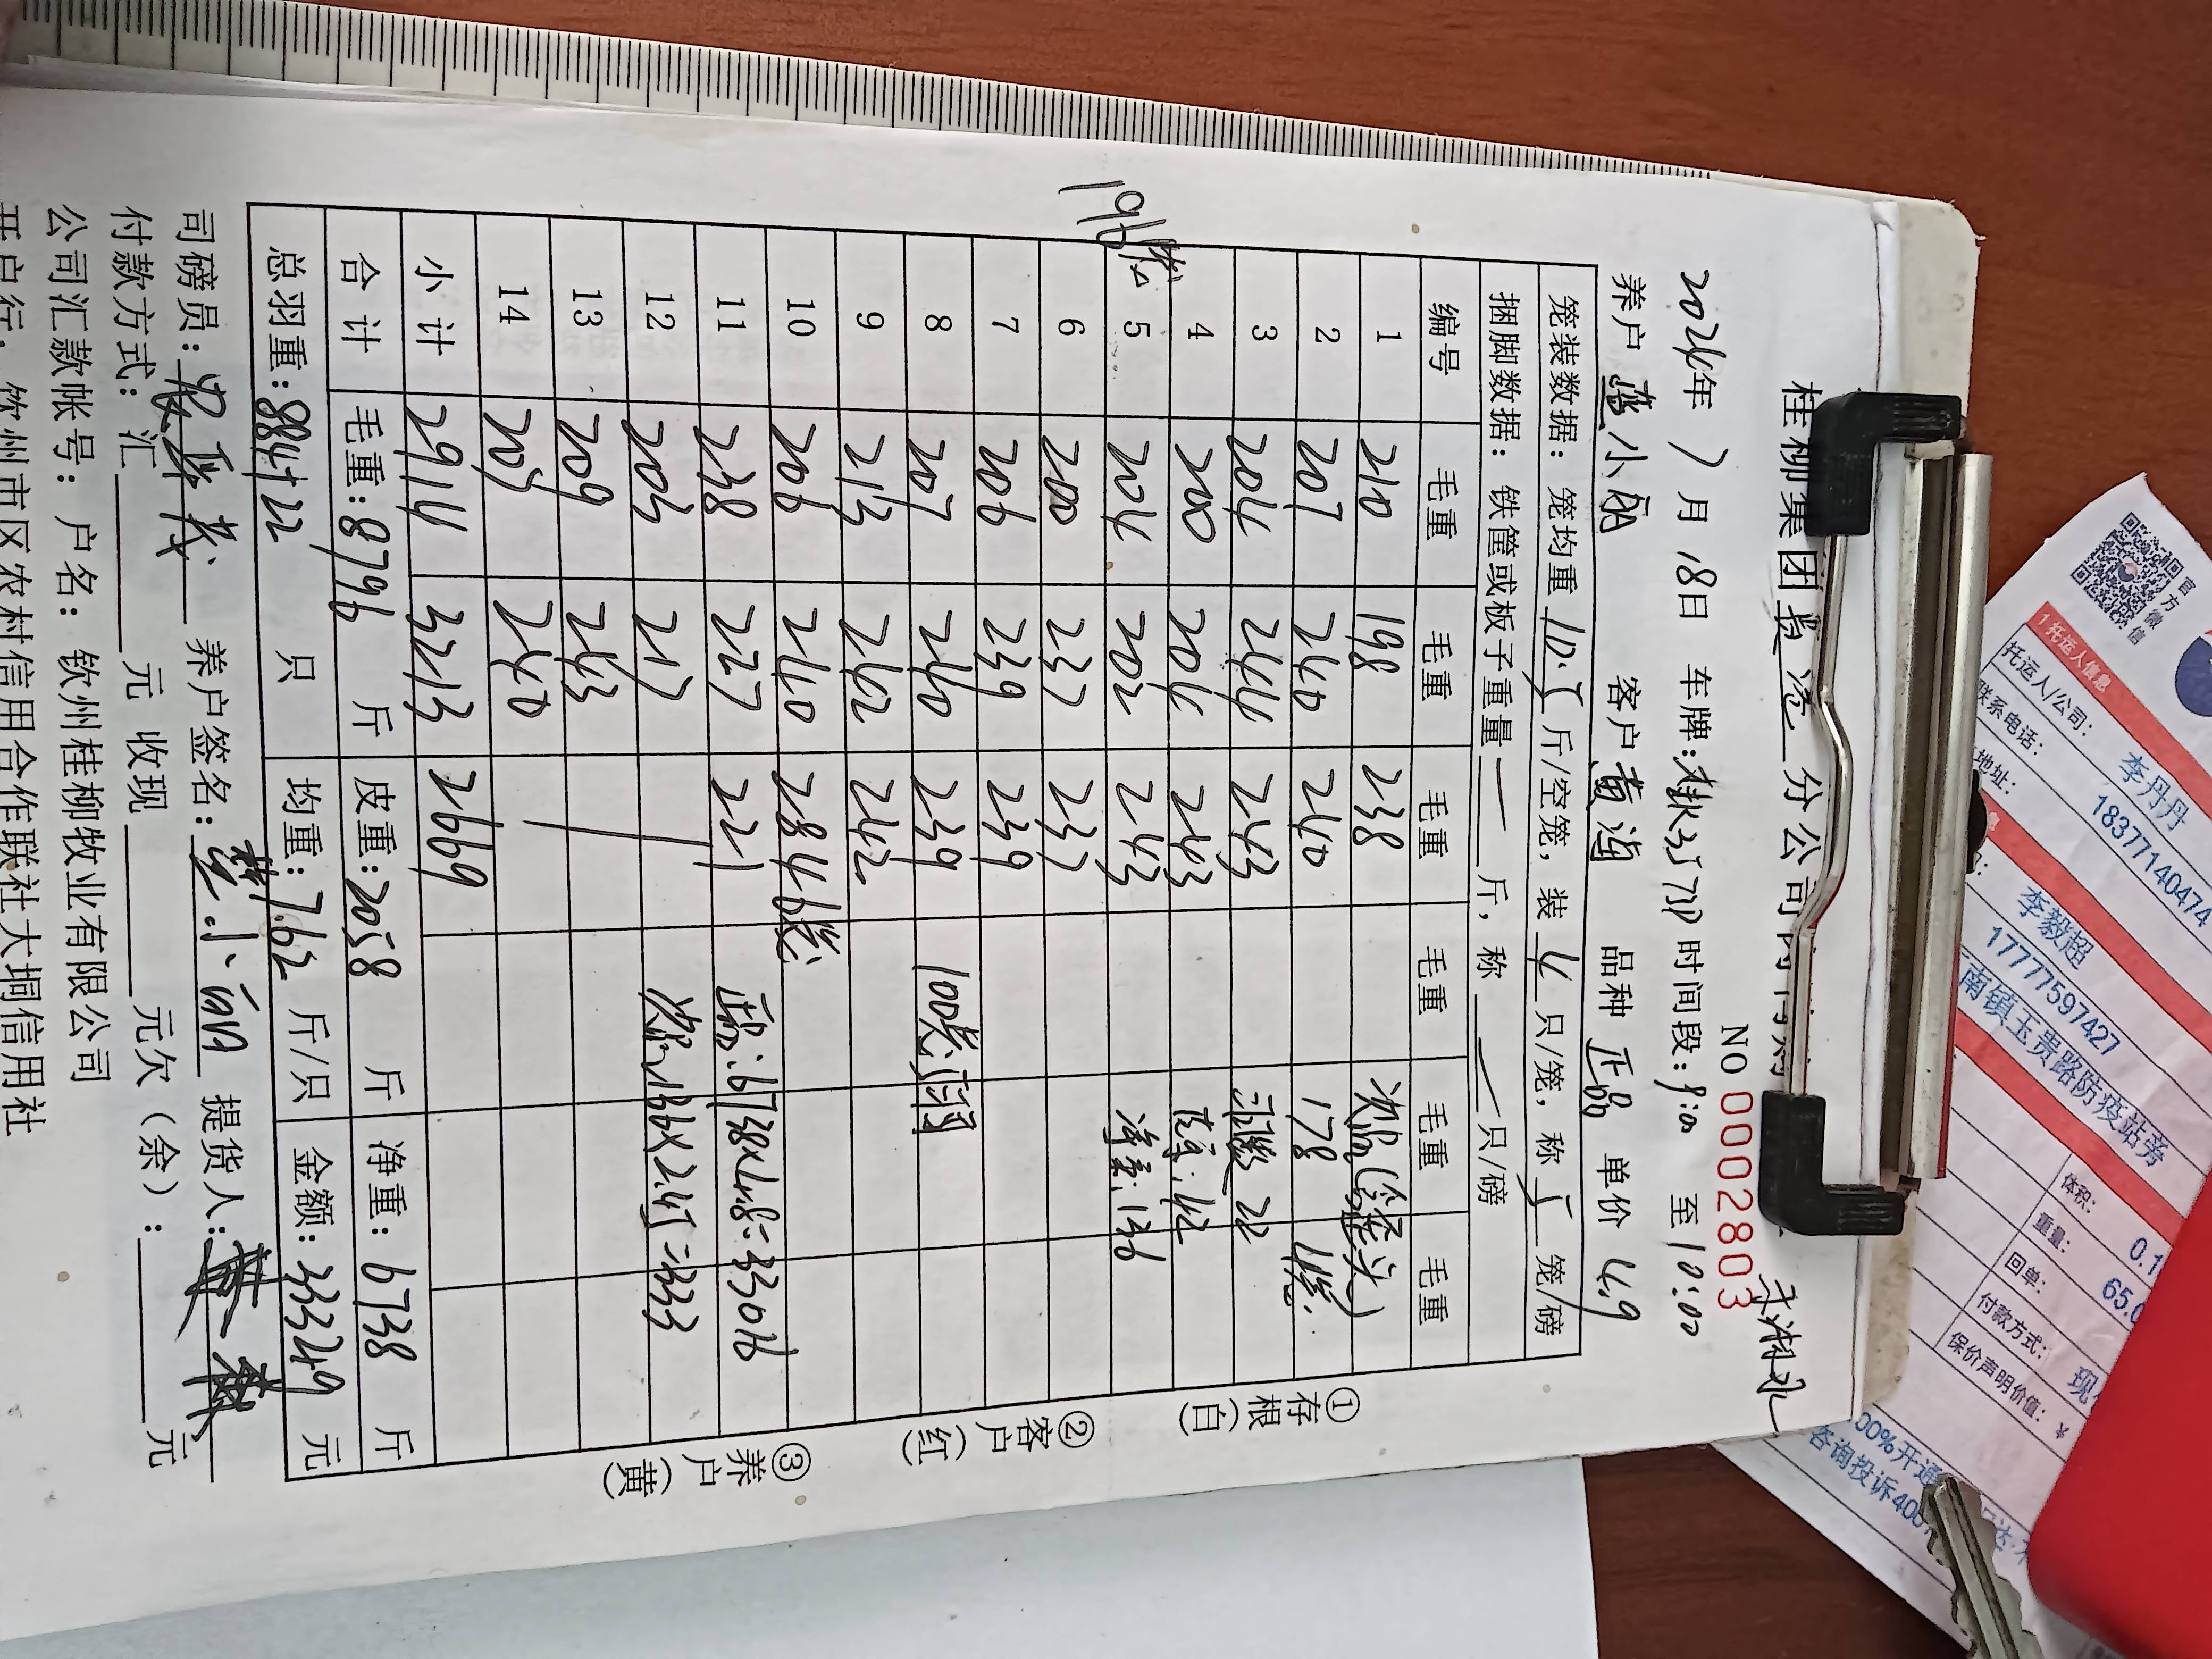 桂柳集团贵港分公司
NO 0002803
2024年7月18日 车牌: 时间段:9:00 至10:00
养户 小丽 客户 黄海 品种 正品 单价 4.9
笼装数据：笼均重 10.5 斤/空笼，装 4 只/笼，称 5 笼/磅
捆脚数据：铁筐或板子重量 — 斤，称 — 只/磅
编号 毛重 毛重 毛重 毛重 毛重 毛重
1 210 198 238 次品
2 207 240 240 178 4笼
3 204 244 243 羽数 22
4 200 204 243 皮重:42
5 204 202 243 净重:136
6 200 237 237
7 206 239 239
8 207 240 239 100羽
9 213 242 242
10 206 240 284 6笼
11 238 227 221 正品:6738x4.9=33016
12 203 217 次品:136x2.45=333
13 209 243
14 203 240
小计 2914 3213 2669
合计 毛重:8796 斤 皮重:2058 斤 净重:6738 斤
总羽重:884+22 只 均重:7.62 斤/只 金额:33349 元
196笼
司磅员: 养户签名: 小丽 提货人:
付款方式：汇 元 收现 元欠（余）: 元
公司汇款帐号：户名：钦州桂柳牧业有限公司
开户行：钦州市区农村信用合作联社大垌信用社
①存根(白)
②客户(红)
③养户(黄)
官方微信
1 托运人信息
托运人/公司: 李丹丹
联系电话: 18377140474
地址:
李毅超
17777597427
南镇玉贵路防疫站旁
体积: 0.1
重量: 65.0
回单:
付款方式: 现
保价声明价值:
00%开通
咨询投诉400